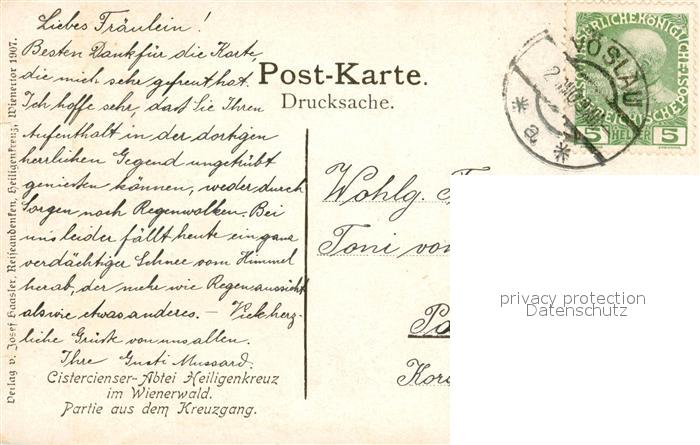 Liebes Fräulein!
Besten Dank für die Karte,
die mich sehr gefreut hat.
Ich hoffe sehr, daß Sie Ihren
Aufenthalt in der dortigen
herrlichen Gegend ungetrübt
geniesten können, weder durch
Sorgen noch Regenwolken. Bei
uns leider fällt heute ein ganz
verdächtiger Schnee vom Himmel
herab, der mehr wie Regen aussieht
als wie etwas anderes. — Viele herz-
liche Grüße von uns allen.
Ihre Gusti Mussard.
Cistercienser-Abtei Heiligenkreuz
im Wienerwald.
Partie aus dem Kreuzgang.
Verlag v. Josef Haasler, Reiseandenken, Heiligenkreuz, Wienertor 1907.
Post-Karte.
Drucksache.
VÖSLAU
* a *
5 HELLER 5
Wohlg.
Toni von
privacy protection
Datenschutz